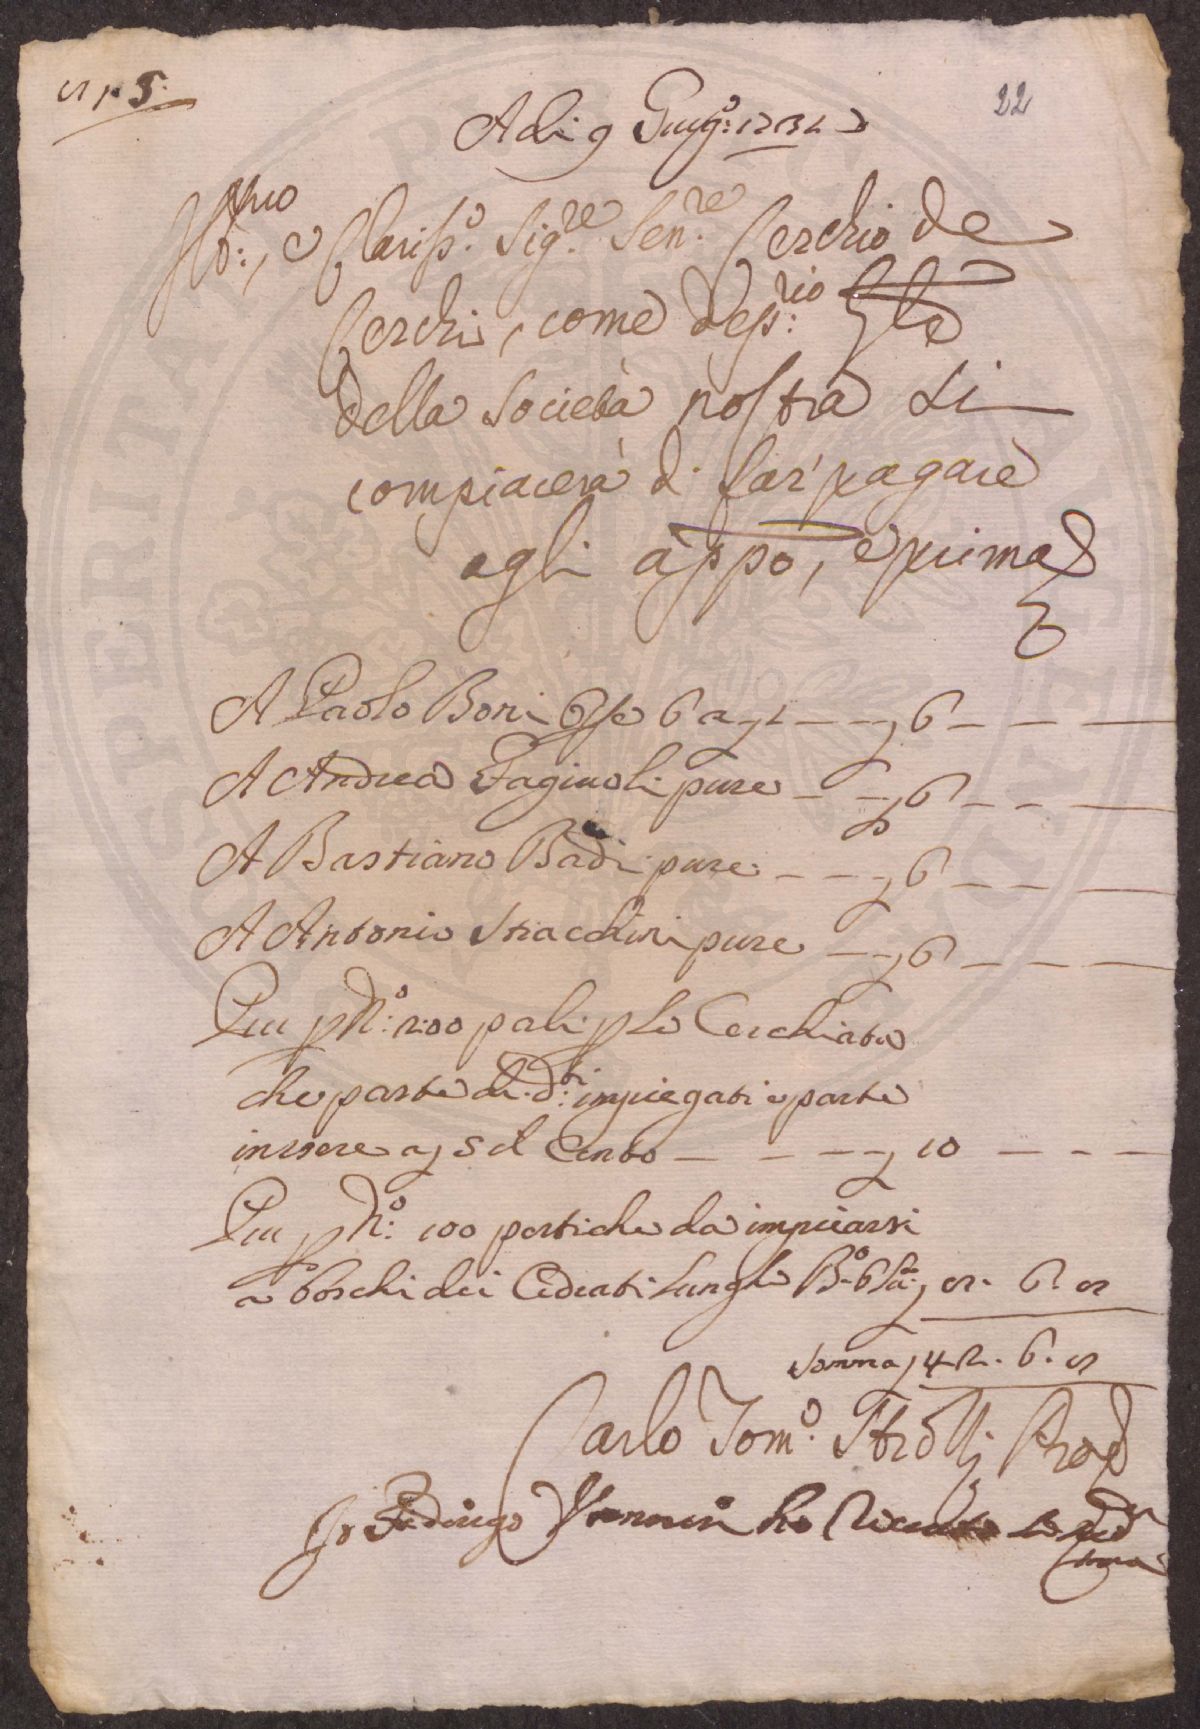 22
A di 9 Giug.º 1734
Ill.mo, e Clariss.º Sig.re Sen.re Cerchio de
Cerchi, come Dep.rio Gle
della Società nostra si
compiacerà di far pagare
agli appo, e prima
A Paolo Boni Ose 6 a 7 6
A Andrea Fagiuoli pure 6
A Bastiano Badi pure 6
A Antonio Stiacchini pure 6
Piu p N.º 200 pali p le Cerchiate
che parte di d.ti impiegati e parte
in essere a 5 il Cento 10
Piu p N.º 100 pertiche da impiearsi
a boschi dei Cedrati lunghe B.º 6 6
Somma 42. 6.
Carlo Tom.º Strozzi Prov
Io ho Ricevuto